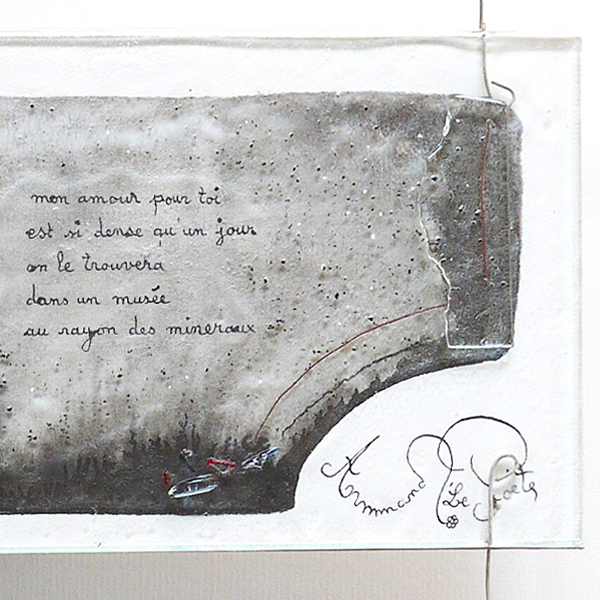 mon amour pour toi
est si dense qu'un jour
on le trouvera
dans un musée
au rayon des mineraux
Armmand Le Poète